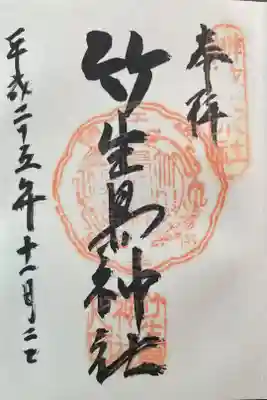 奉拝
竹生島神社
平成二十五年十一月二日